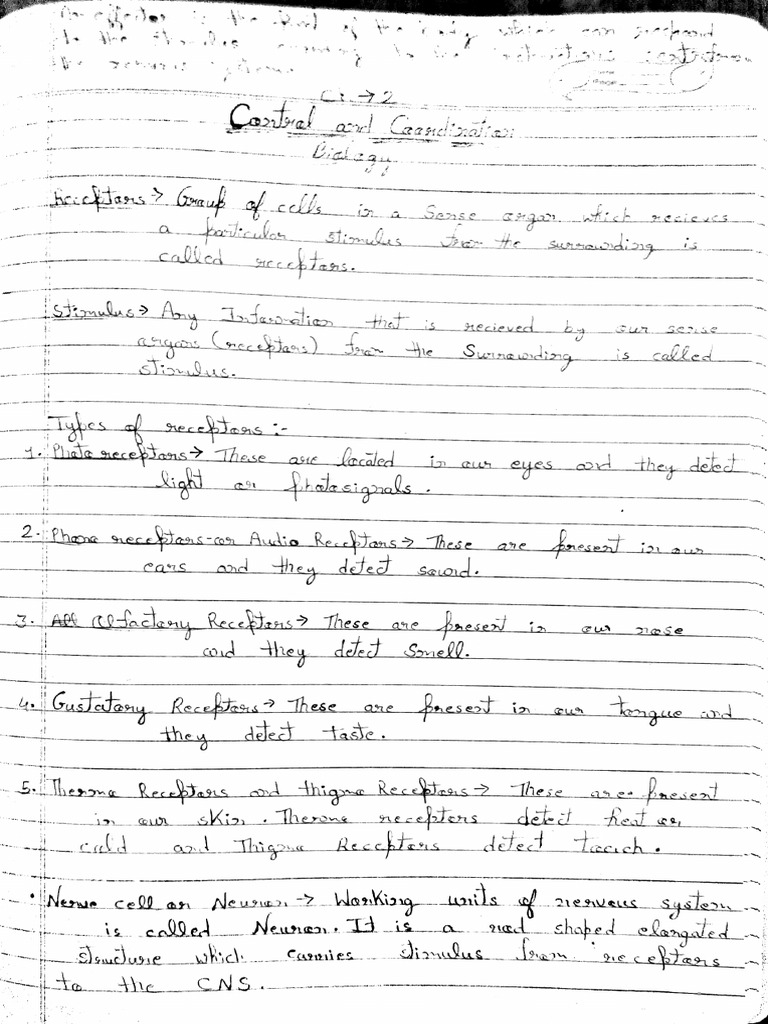 Ch → 2
Control and Coordination
Biology
Receptors → Group of cells in a sense organ which recieves
a particular stimulus from the surrounding is
called receptors.
Stimulus → Any Information that is recieved by our sense
organs (receptors) from the Surrounding is called
stimulus.
Types of receptors :-
1. Photo receptors → These are located in our eyes and they detect
light or photosignals.
2. Phono receptors or Audio Receptors → These are present in our
ears and they detect sound.
3. Olfactory Receptors → These are present in our nose
and they detect smell.
4. Gustatory Receptors → These are present in our tongue and
they detect taste.
5. Thermo Receptors and thigmo Receptors → These are present
in our skin. Thermo receptors detect heat or
cold and Thigmo Receptors detect touch.
• Nerve cell or Neuron → Working units of nervous system
is called Neuron. It is a rod shaped elongated
structure which carries stimulus from receptors
to the CNS.